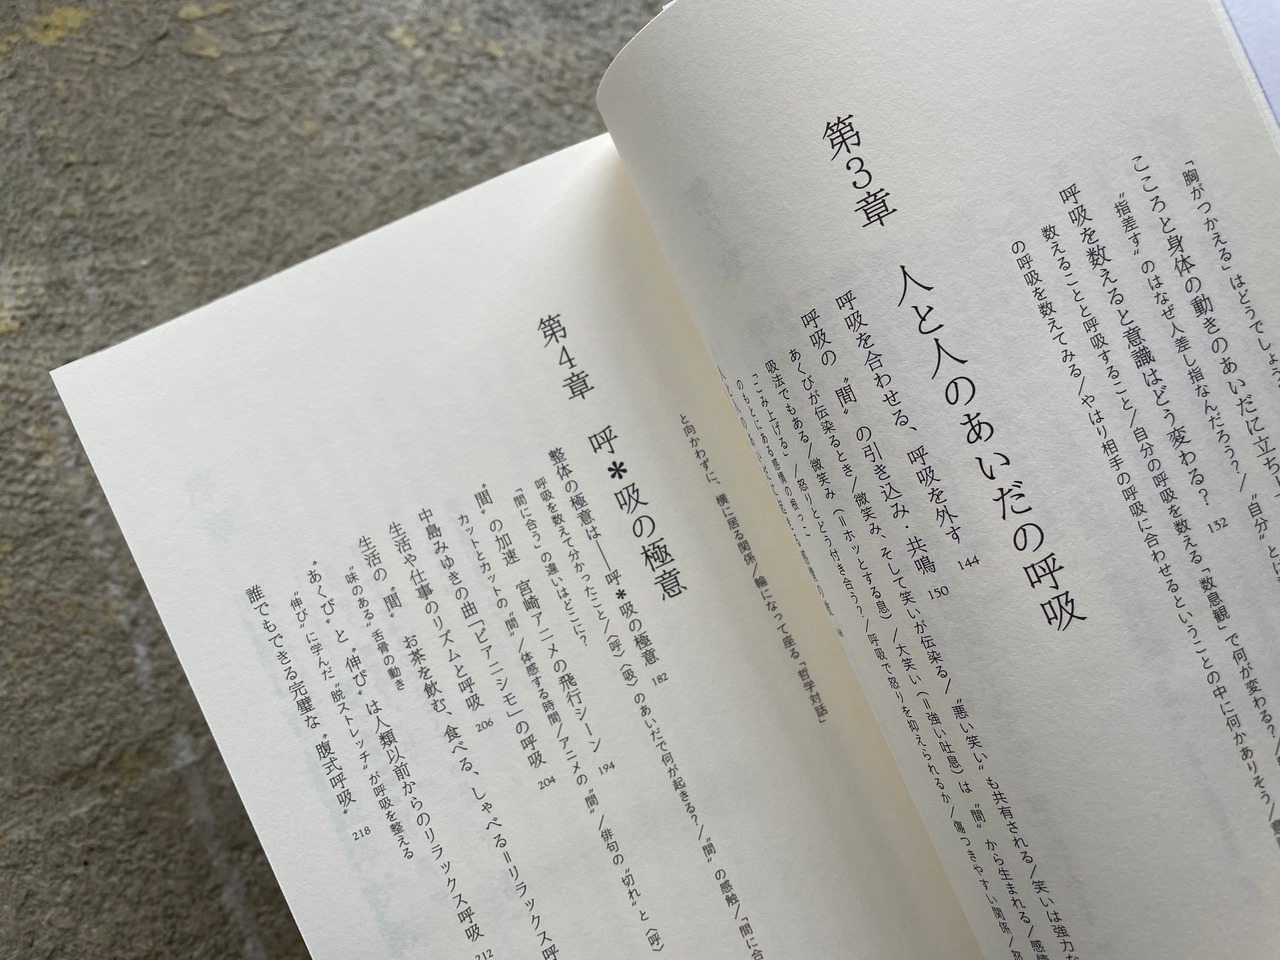 「胸がつかえる」はどうでしょう
こころと身体の動きのあいだに立ち
〝指差す〟のはなぜ人差し指なんだろう?/〝自分〟とは
呼吸を数えると意識はどう変わる? 132
数えることと呼吸すること/自分の呼吸を数える「数息観」で何が変わる?/
の呼吸を数えてみる/やはり相手の呼吸に合わせるということの中に何かありそう/
第3章 人と人のあいだの呼吸
呼吸を合わせる、呼吸を外す 144
呼吸の〝間〟の引き込み・共鳴 150
あくびが伝染るとき/微笑み、そして笑いが伝染る/〝悪い笑い〟も共有される/笑いは強力な
吸法でもある/微笑み(=ホッとする息)/大笑い(=強い吐息)は〝間〟から生まれる/感情
「こみ上げる」/怒りとどう付き合う?/呼吸で怒りを抑えられるか/傷つきやすい関係/怒
のもとにある感情の根っこ
と向かわずに、横に居る関係/輪になって座る「哲学対話」
第4章 呼*吸の極意
整体の極意は──呼*吸の極意 182
呼吸を数えて分かったこと/〈呼〉〈吸〉のあいだで何が起きる?/〝間〟の感触/「間に合
「間に合う」の違いはどこに?
〝間〟の加速 宮崎アニメの飛行シーン 194
カットとカットの〝間〟/体感する時間/アニメの〝間〟/俳句の〝切れ〟と〈呼〉
中島みゆきの曲「ピアニシモ」の呼吸 204
生活や仕事のリズムと呼吸 206
生活の〝間〟 お茶を飲む、食べる、しゃべる=リラックス呼
〝味のある〟舌骨の動き
〝あくび〟と〝伸び〟は人類以前からのリラックス呼吸 212
〝伸び〟に学んだ〝脱ストレッチ〟が呼吸を整える
誰でもできる完璧な〝腹式呼吸〟 218